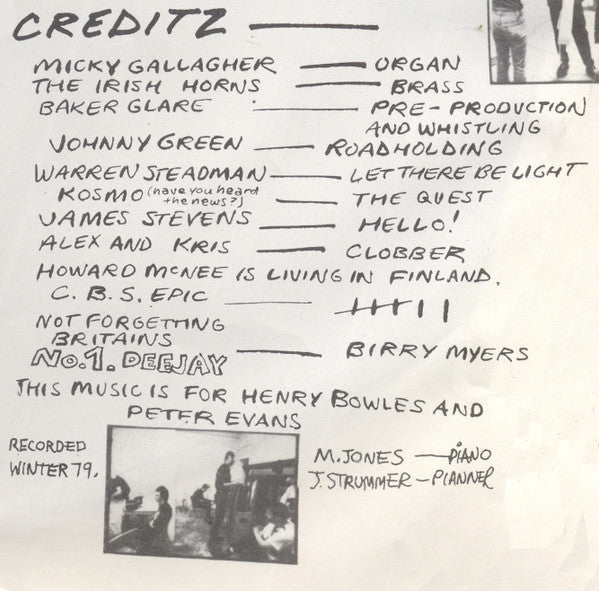 CREDITZ
MICKY GALLAGHER — ORGAN
THE IRISH HORNS — BRASS
BAKER GLARE — PRE-PRODUCTION
AND WHISTLING
JOHNNY GREEN — ROADHOLDING
WARREN STEADMAN — LET THERE BE LIGHT
KOSMO (have you heard
the news?) — THE QUEST
JAMES STEVENS — HELLO!
ALEX AND KRIS — CLOBBER
HOWARD McNEE IS LIVING IN FINLAND.
C.B.S. EPIC —
NOT FORGETTING
BRITAINS
No.1. DEEJAY — BIRRY MYERS
THIS MUSIC IS FOR HENRY BOWLES AND
PETER EVANS
RECORDED
WINTER 79.
M. JONES — PIANO
J. STRUMMER — PIANNER